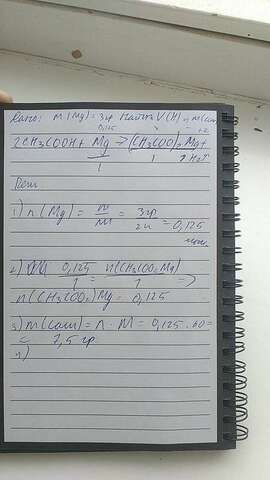 Дано: m(Mg)=3гр Найти V(H) и m(соли)
0,125
2CH₃COOH + Mg → (CH₃COO)₂Mg +
1 1 ↑H₂↑
Реш
1) n(Mg) = m/M = 3гр/24 = 0,125
моль
2) 0,125/1 = n(CH₃COO₂Mg)/1 =>
n(CH₃COO₂)Mg = 0,125
3) m(соли) = n · M = 0,125 · 60 =
= 7,5 гр
4)